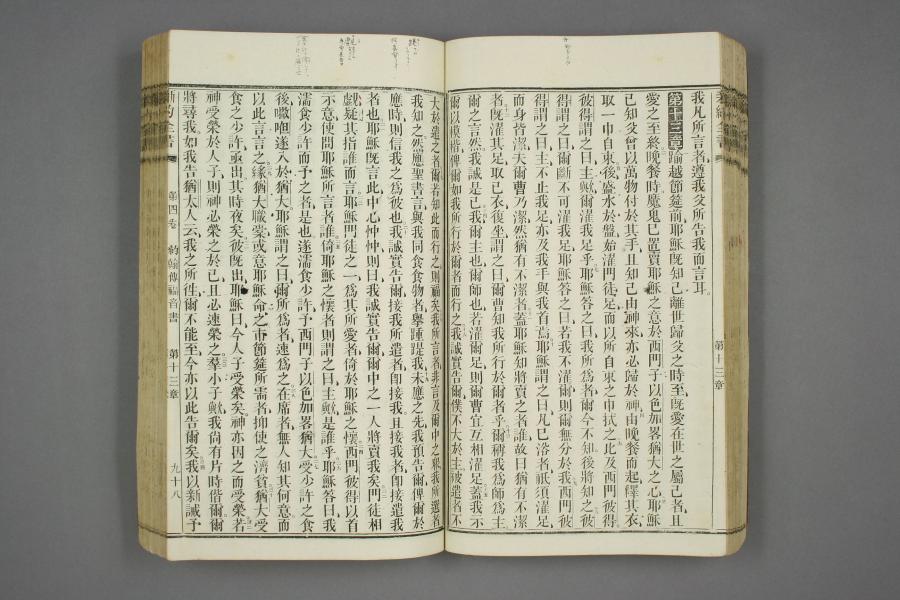 我凡所言者、遵我父所告我而言耳。
第十三章 踰越節筵前、耶穌旣知己離世歸父之時至、旣愛在世之屬己者、且
愛之至終、晚餐時、魔鬼已置賣耶穌之意於西門子以色加畧猶大之心、耶穌
己知父曾以萬物付於其手、且知己由神來、亦必歸於神、由晚餐而起、釋其衣、
取一巾自束、後盛水於盤、始濯門徒足、而以所自束之巾拭之、比及西門彼得、
彼得謂之曰、主歟、爾濯我足乎、耶穌答之曰、我所爲者、爾今不知、後將知之、彼
得謂之曰、爾斷不可濯我足、耶穌答之曰、若我不濯爾、則爾無分於我、西門彼
得謂之曰、主、不止我足、亦及我手與我首焉、耶穌謂之曰、凡已洛者、祇須濯足、
而身皆潔矣、爾曹乃潔、然猶有不潔者、蓋耶穌知將賣之者誰、故曰猶有不潔
者、旣濯其足、取己衣、復坐、謂之曰、爾曹知我所行於爾者乎、爾稱我爲師爲主、
爾之言然、我誠是已、我、爾主也、爾師也、若濯爾足、則爾曹宜互相濯足、蓋我示
爾以模楷、俾爾如我所行於爾者而行之、我誠實告爾、僕不大於主、被遣者不
大於遣之者、爾若知此而行之則福矣、我所言者、非言及爾中之衆、我所選者
我知之、然應聖書言、與我同食食物者、舉踵踶我、未應之先、我預告爾、俾爾於
應時則信我之爲彼也、我誠實告爾、接我所遣者、卽接我、且接我者、卽接遣我
者也、耶穌旣言此、中心忡忡、則曰、我誠實告爾、爾中之一人將賣我矣、門徒相
覷、疑其指誰而言、耶穌門徒之一、爲其所愛者、倚於耶穌之懷、西門彼得以首
示意、使問耶穌所言者誰、倚耶穌之懷者則謂之曰、主歟、是誰乎、耶穌答曰、我
濡食少許而予之者是也、遂濡食少許、予西門子以色加畧猶大、受少許之食
後、撒但遂入於猶大、耶穌謂之曰、爾所爲者速爲之、在席者無人知其何意而
以此言言之、緣猶大職槖、或意耶穌命之市節筵所需者、抑使之濟貧、猶大受
食之少許、亟出、其時夜矣、彼旣出、耶穌曰、今人子受榮矣、神亦因之而受榮、若
神受榮於人子、則神必榮之於已、且必速榮之、小子歟、我尙有片時偕爾、爾
將尋我、如我告猶太人云、我之所往、爾不能至、今亦以此告爾矣、我以新誡予
新約全書
第四卷 約翰傳福音書 第十三章 九十八
第十三章